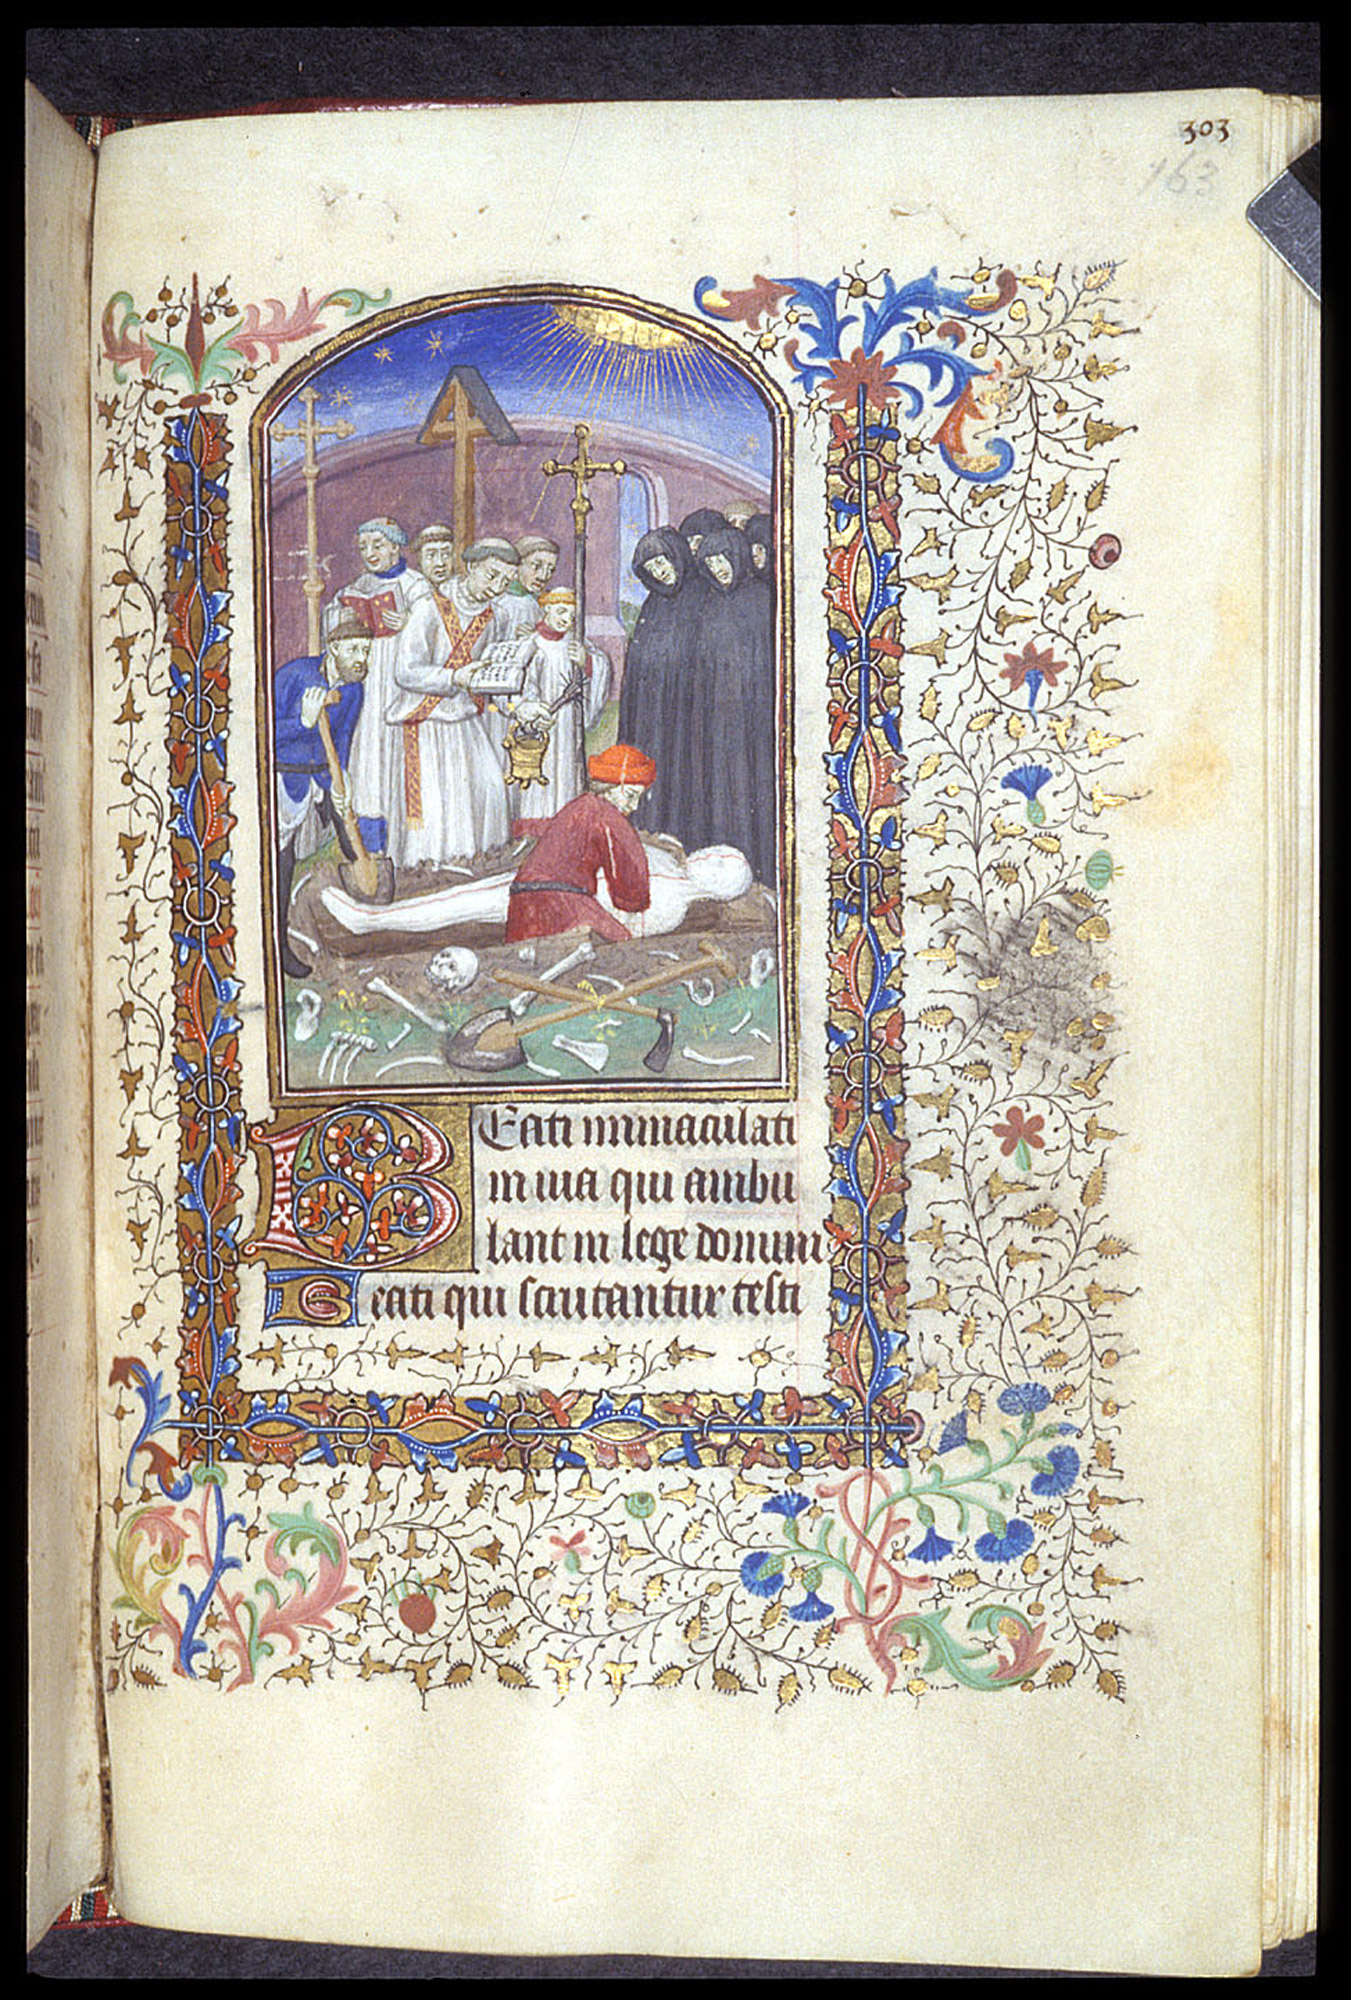 303
163
Beati inmaculati
in uia qui ambu
lant in lege domini
Beati qui scrutantur testi